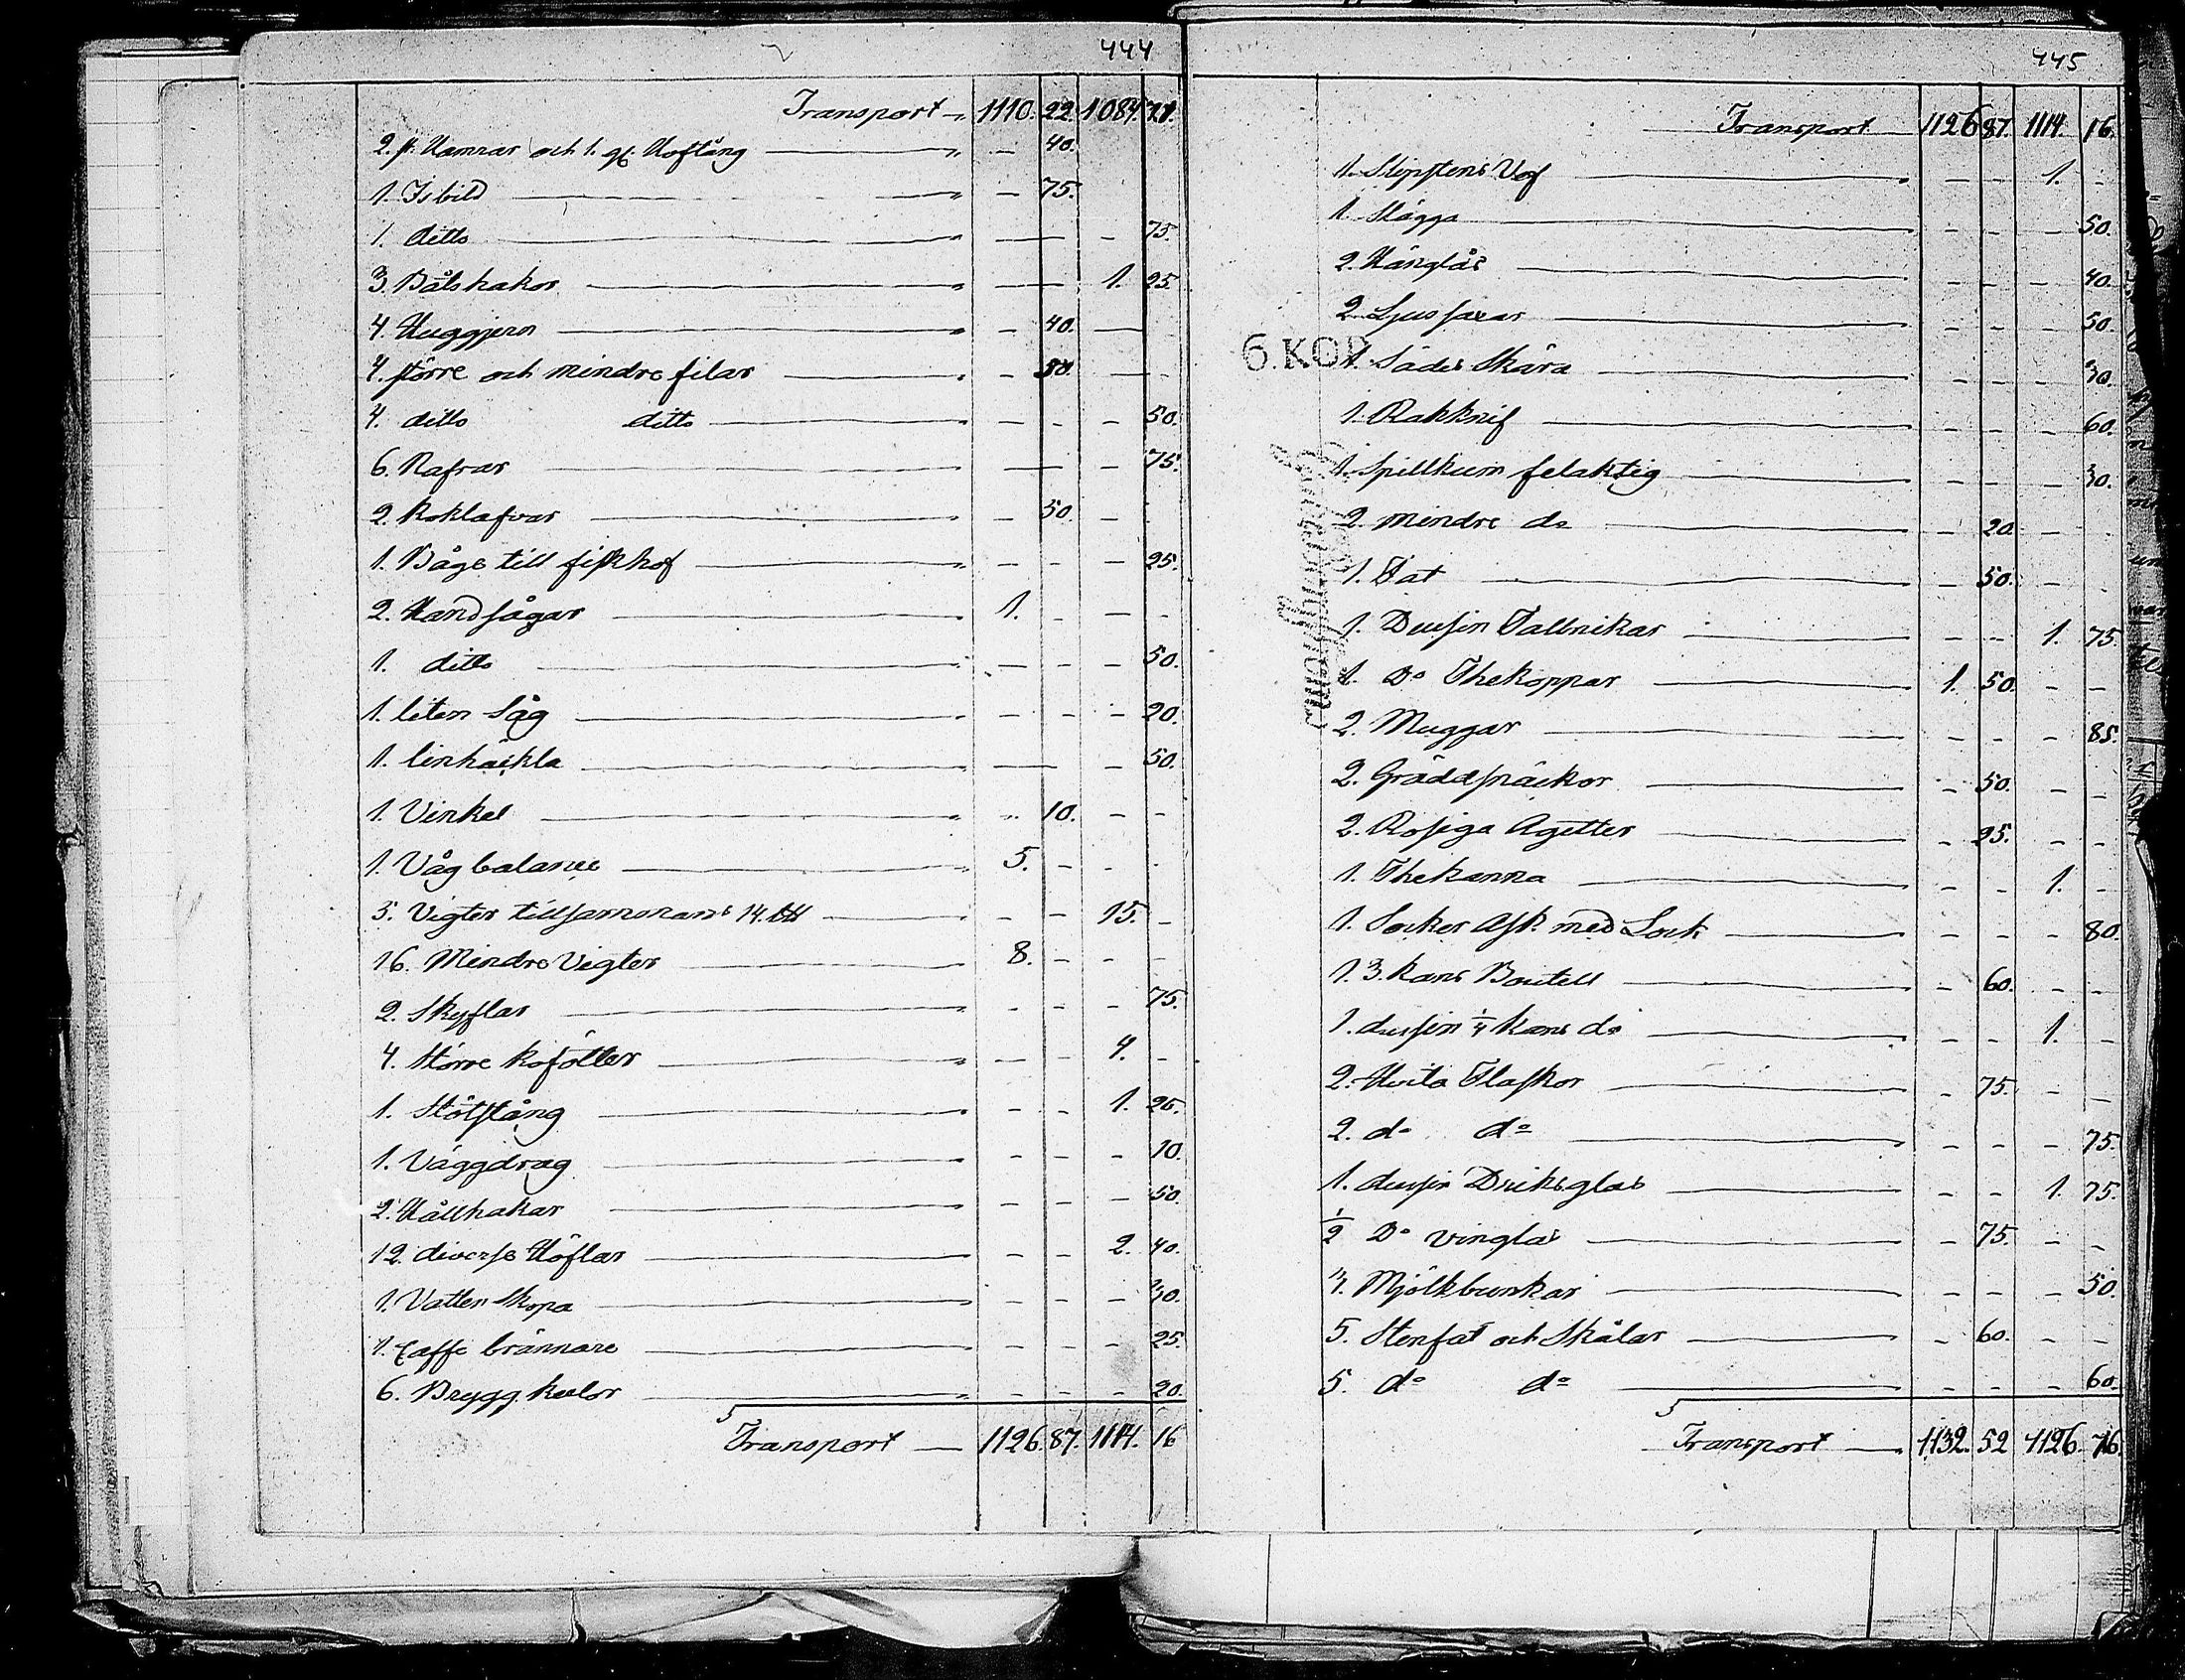 444
Transport 1110. 22. 1084. 71.
2. st. Hamrar och 1. gl. Hoftång — 40.
1. Isbild — 75.
1. ditto — — 75.
3. Båtshakar — 1. 25.
4. Huggjern — 40. —
4. större och mindre filar — 50. —
4. ditto ditto — - — 50.
6. Nafrar — — 75.
2. Koklafvar — 50. —
1. Båge till fiskhof — - — 25.
2. Handsågar 1. - — -
1. ditto — - - 50.
1. liten Såg - - - 20.
1. linhäckla — — 50.
1. Vinkel " 10. - -
1. Våg balance 5. - - -
5. Vigter tillsammans 14. L℔ - - 15. -
16. Mindre Vigter 8. - - -
2. Skyflar - - - 75.
4. Större kofötter — - 4. -
1. Stötstång - - 1. 25.
1. Väggdrag - - - 10.
2. Hållhakar - - - 50.
12. diverse Höflar - - 2. 40.
1. Vatten Skopa - - - 30.
1. Caffe brännare - - - 25.
6. Brygg kulor - - - 20.
Transport — 1126. 87. 1114. 16
445
Transport 1126 87. 1114. 16.
1. Slipstens Vef - - 1. -
1. Slägga - - - 50.
2. Hänglås - - - 40.
2. Ljus saxar - - - 50.
6.KOP
1. Sädes Skära - - - 30.
1. Rakknif - - - 60.
1. Spillkum felaktig - - - 30.
2. mindre do - 20 - -
1. Fat - 50. - -
1. Dussin Tallrikar - - 1. 75.
1. Do Thekoppar 1. 50. - -
2. Muggar - - - 85.
2. Gräddsnäckor - 50. - -
2. Rosiga Asietter - 25. - -
1. Thekanna - - 1. -
1. Socker Ask med Lock - - - 80.
1. 3. kans Boutell - 60. - -
1. dussin 1/4 kans do - - 1. -
2. Hvita Flaskor - 75. - -
2. do do - - - 75.
1. dussin Driksglas - - 1. 75.
1/2 Do vinglas - 75. - -
4. Mjölkbunkar - - - 50.
5. Stenfat och Skålar - 60. - -
5. do do - - - 60.
Transport — 1132. 52 1126. 76.